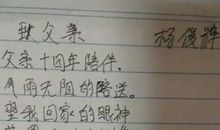 致父亲 杨俊辉
父亲十四年陪伴，
风雨无阻的陪送。
望我回家的眼神